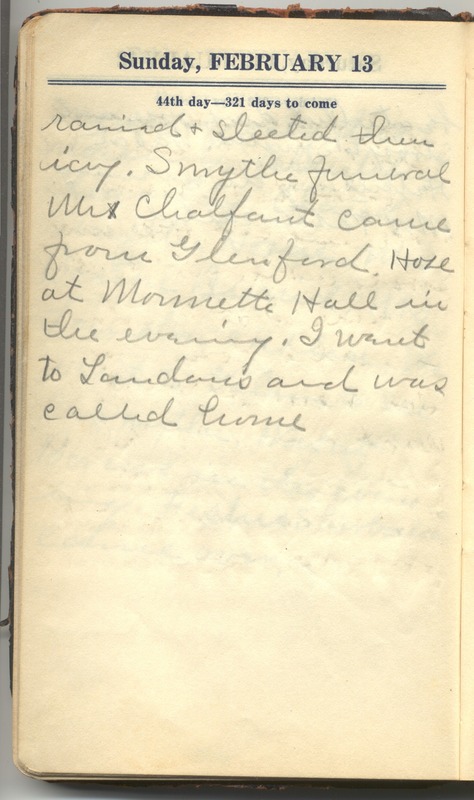 Sunday, FEBRUARY 13
44th day—321 days to come
rained + sleeted then
icy. Smythe funeral
Mrs Chalfant came
from Glenford. Hose
at Monnette Hall in
the evening. I went
to Landon's and was
called home